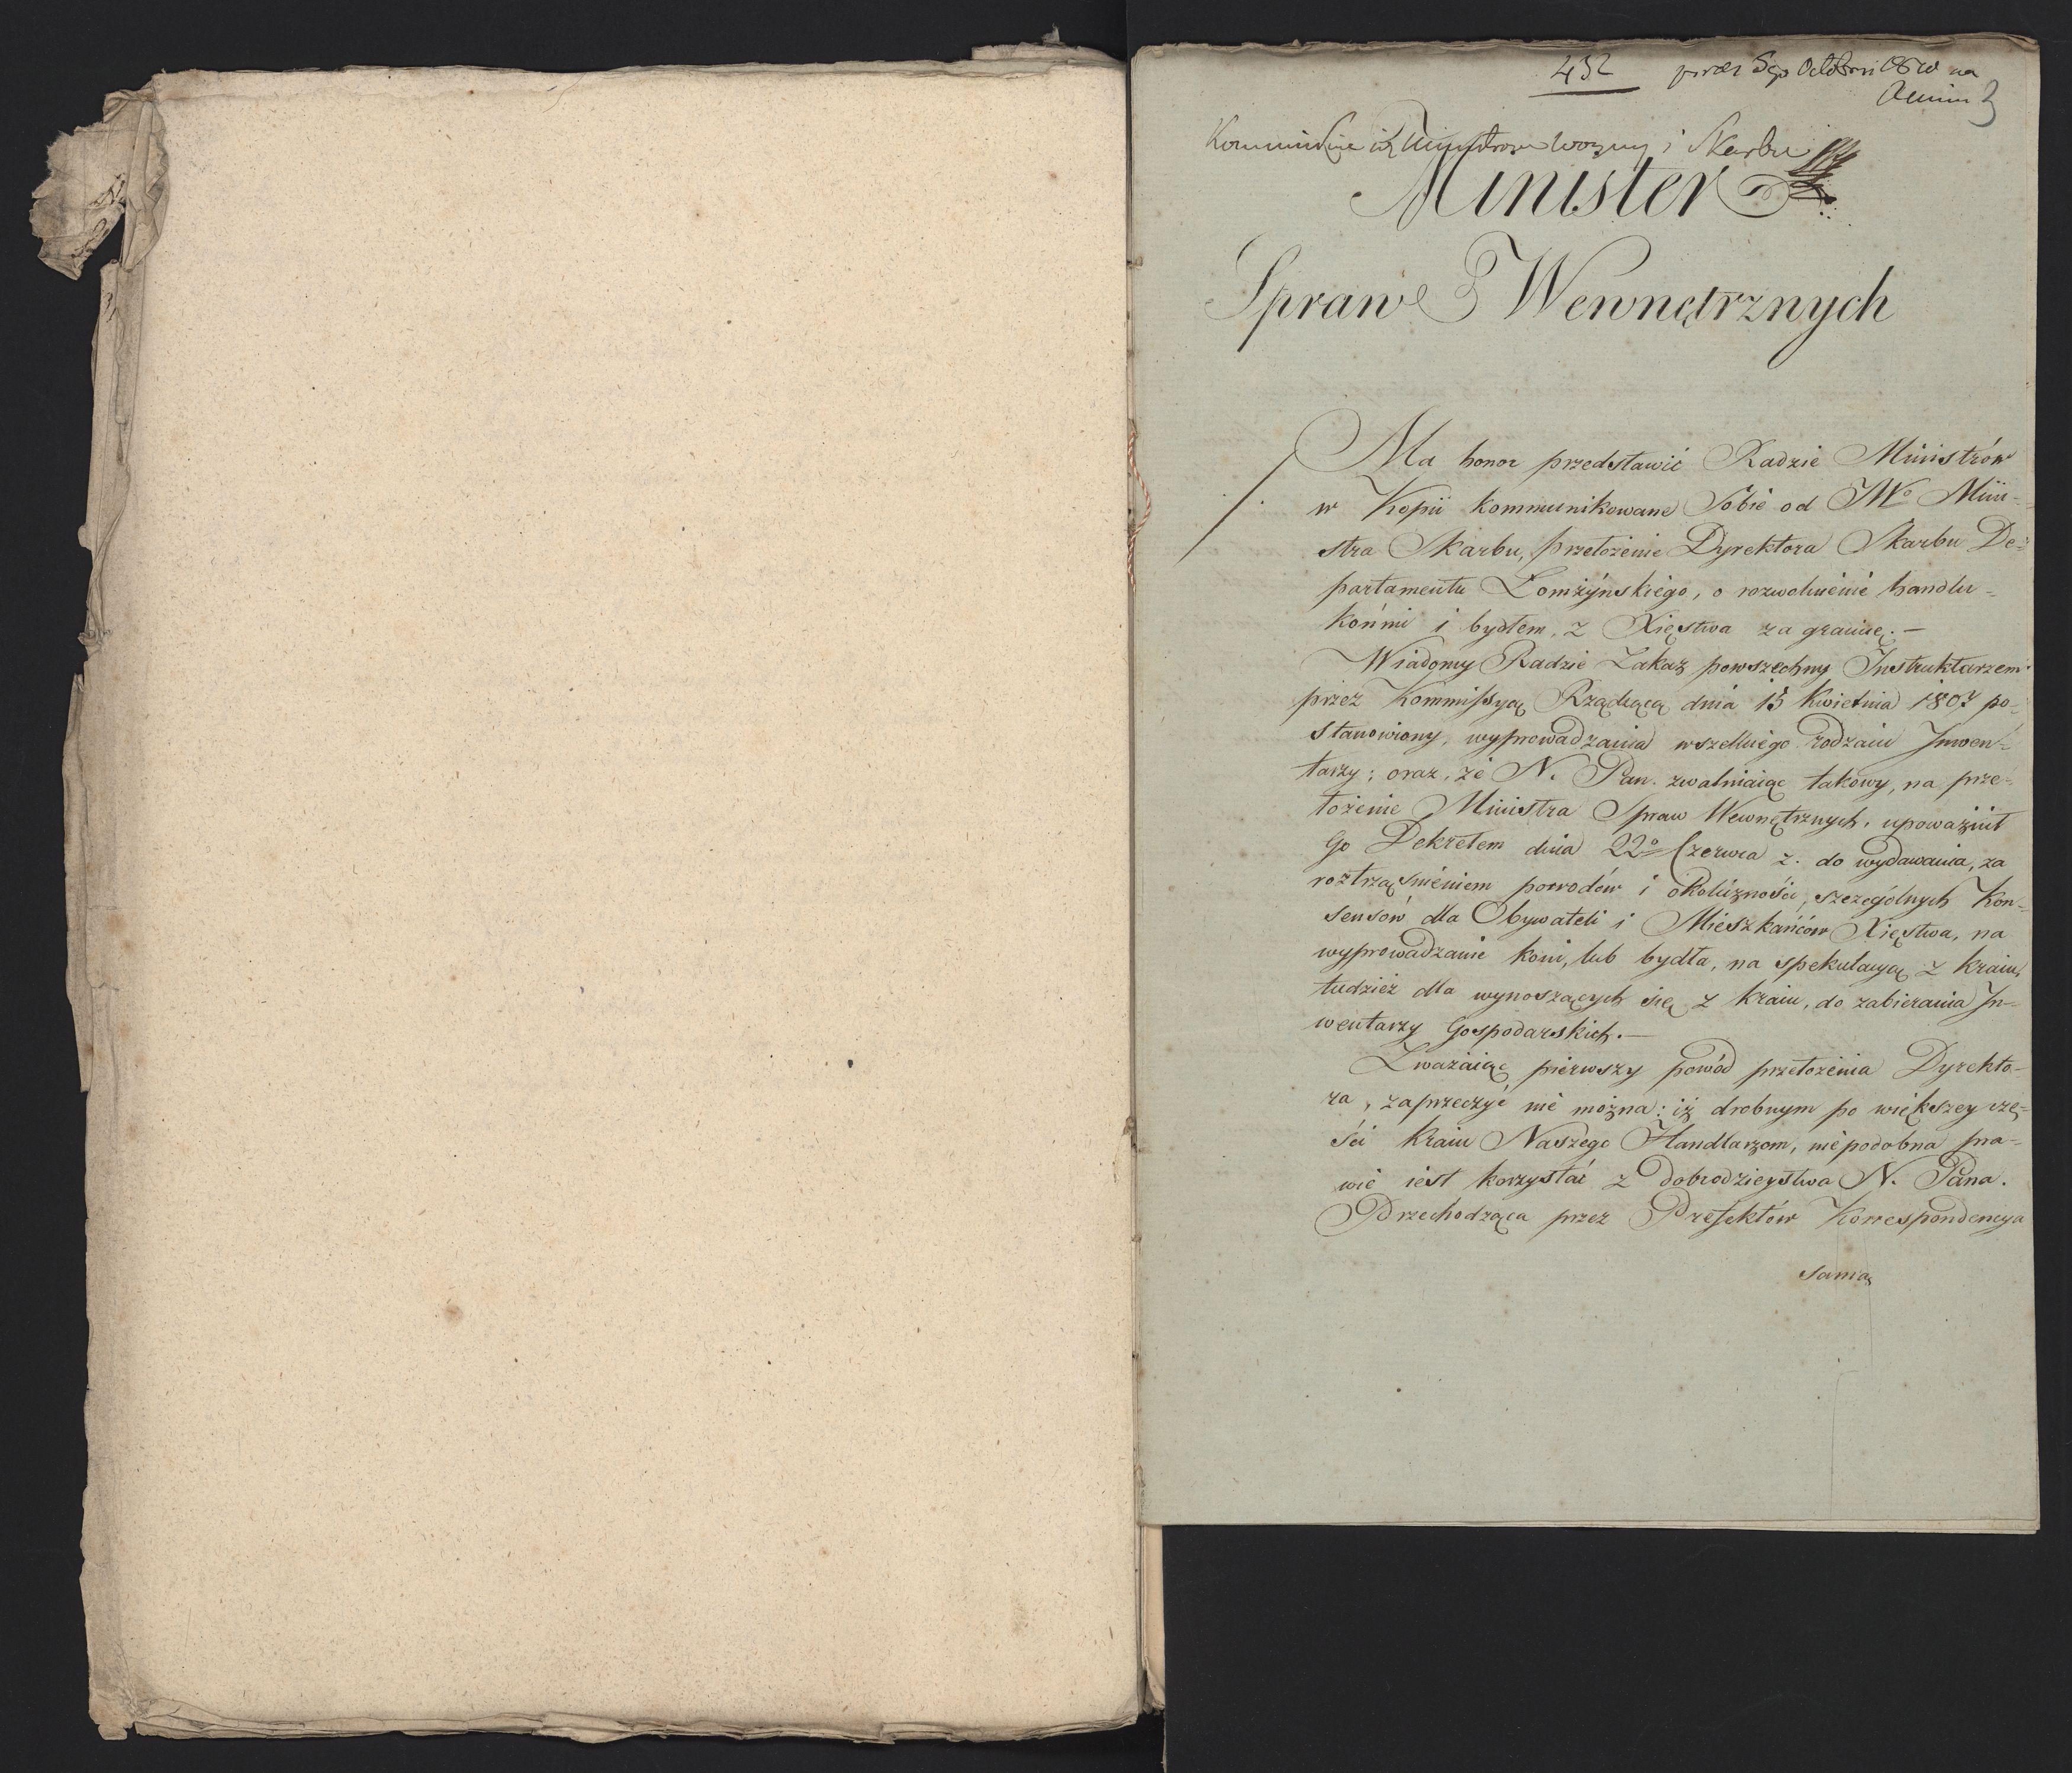 432
3
i Skarbu
Minister
Spraw Wewnętrznych
Ma honor przedstawić Radzie Ministrów
w Kopii kommunikowane Sobie od JWo Mini-
stra Skarbu, przełożenie Dyrektora Skarbu De-
partamentu Łomżyńskiego, o rozwolnienie handlu
końmi i bydłem, z Xięstwa za granicę.—
Wiadomy Radzie Zakaz powszechny Instruktarzem
przez Kommissyą Rządzącą dnia 15 Kwietnia 1807 po-
stanowiony, wyprowadzania wszelkiego rodzaiu Jnwen-
tarzy; oraz, że N. Pan. zwalniaiąc takowy, na prze-
łożenie Ministra Spraw Wewnętrznych, upoważnił
Go Dekretem dnia 22o Czerwca r. do wydawania, za
roztrząśnieniem powodów i okoliczności, szczególnych Kon-
sensów dla Obywateli i Mieszkańców Xięstwa, na
wyprowadzanie koni, lub bydła, na spekulacyą z kraiu,
tudzież dla wynoszących się z kraiu, do zabierania Jn-
wentarzy Gospodarskich.—
Zważaiąc pierwszy powód przełożenia Dyrekto-
ra, zaprzeczyć nie można: iż drobnym po większey czę-
ści Kraiu Naszego Handlarzom, niepodobna pra-
wie iest korzystać z dobrodzieystwa N. Pana.
Przechodząca przez Prefektów Korrespondencya
sama